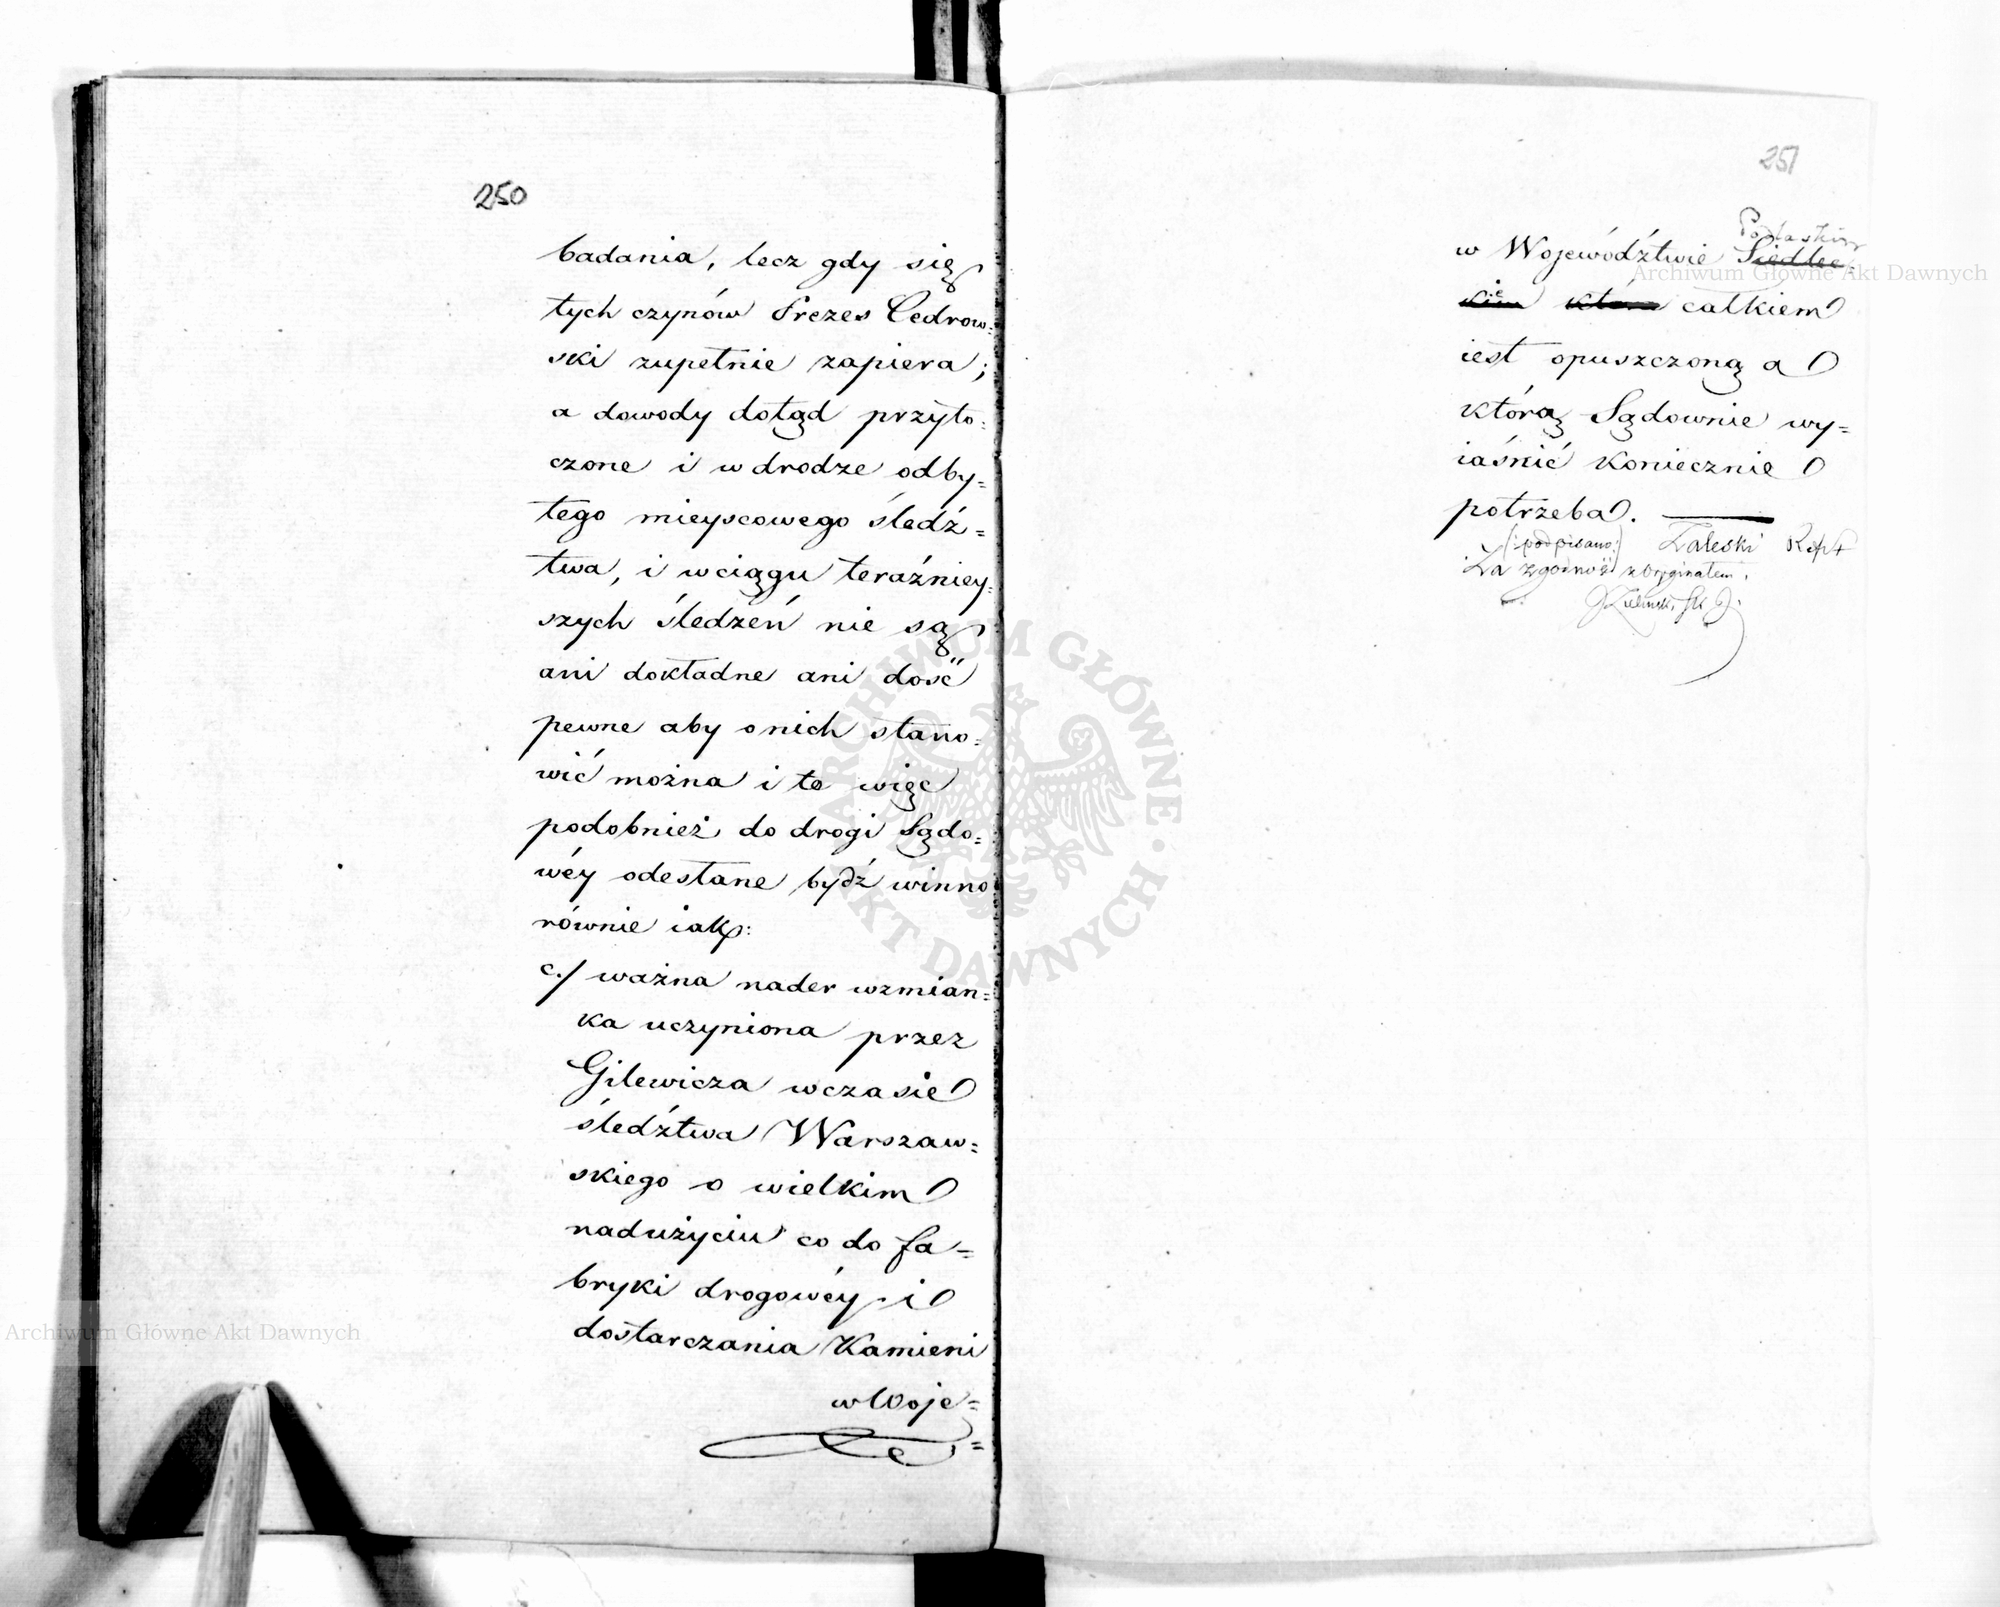 250
badania, lecz gdy się
tych czynów Prezes Cedrow=
ski zupełnie zapiera;
a dowody dotąd przyto=
czone i w drodze odby=
tego mieyscowego śledz=
twa, i wciągu teraźniey=
szych śledzeń nie są
ani dokładne ani dość
pewne aby onich stano=
wić można i te więc
podobnież do drogi Sądo=
wéy odesłane bydź winno
równie iak:
c./ ważna nader wzmian=
ka uczyniona przez
Gilewicza wczasie
śledźtwa Warszaw=
skiego o wielkim
nadużyciu co do fa=
bryki drogowéy i
dostarczania Kamieni
w Woje=
251
Podlaskim
w Województwie Siedlec
kim która całkiem
iest opuszczoną a
którą Sądownie wy=
iaśnić koniecznie
potrzeba.
(:podpisano:) Zaleski
Za zgodność z Oryginałem
ARCHIWUM GŁÓWNE AKT DAWNYCH
Archiwum Główne Akt Dawnych
Archiwum Główne Akt Dawnych